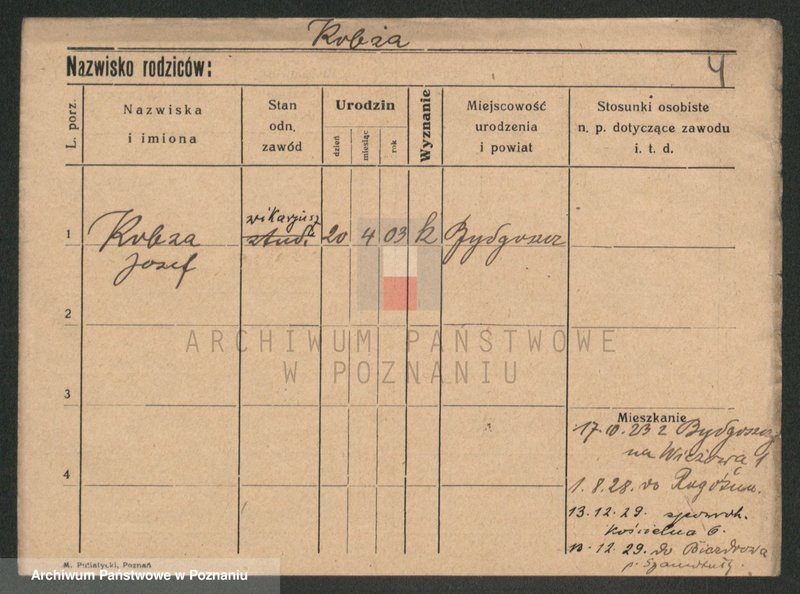 Kobza
Nazwisko rodziców: 4
L. porz.
Nazwiska i imiona
Stan odn. zawód
Urodzin
dzień
miesiąc
rok
Wyznanie
Miejscowość urodzenia i powiat
Stosunki osobiste n. p. dotyczące zawodu i. t. d.
wikarjusz
1 Kobza stud. 20 4 03 k Bydgoszcz
Josef
2
ARCHIWUM PAŃSTWOWE
W POZNANIU
3
Mieszkanie
17.10.23 z Bydgoszcz
na Wieżowa 1
4
1.8.28. do Rogoźna.
13.12.29.
Kościelna 6.
12.29. do
p.
M. Putiatycki, Poznań
Archiwum Państwowe w Poznaniu